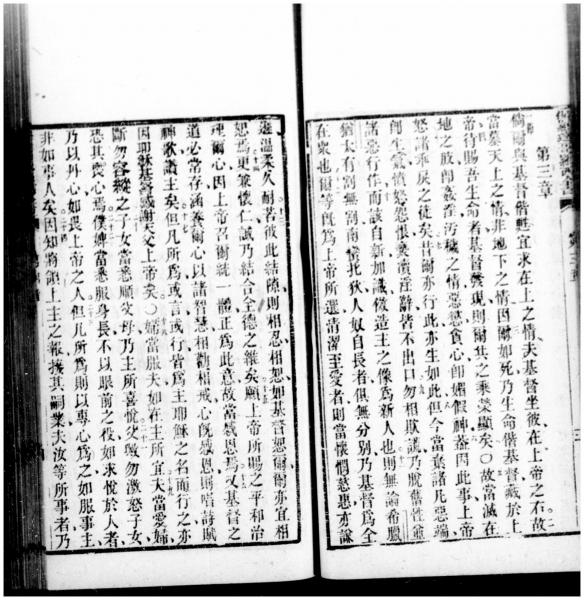 第三章
倘爾與基督偕甦宜求在上之情夫基督坐彼在上帝之右故
當慕天上之情非地下之情因爾如死乃生命偕基督藏於上
帝待賜吾生命者基督發現則爾共之乘榮顯矣○故當滅在
地之肢即姦淫污穢之情惡慾貪心即媚假神葢因此事上帝
怒諸乖反之徒矣昔爾亦行此亦生如此但今當棄諸凡惡端
即生氣憤怒怨恨褻瀆淫辭皆不出口勿相欺謊乃脫舊性並
諸惡行作而該自新加識傚造主之像為新人也則無論希臘
猶太有割無割南托狄人奴自長者俱無分別乃基督為全
在眾也爾等既為上帝所選清潔至愛者則當懷憫慈惠亦謙
遜溫柔久耐若彼此結隙則相忍相恕如基督恕爾爾亦宜相
恕焉更兼懷仁誠乃結合全德之維矣願上帝所賜之平和治
理爾心因上帝召爾統一體正為此意故當感恩焉又基督之
道必當存涵養爾心以諸智慧相勸相戒心既感恩則唱詩賦
神歌讚主矣但凡所為或言或行皆為主耶穌之名而行之亦
因耶穌基督感謝天父上帝矣○婦當服夫如在主所宜夫當愛婦
斷勿容縱之子女當悉順父母乃主所喜悅父勿激怒子女
恐其喪心焉僕婢當悉服身長不以眼前之役如求悅於人者
乃以丹心如畏上帝之人但凡所為則以專心為之如服事主
非如事人矣因知將領上主之報援其嗣業夫汝等所事者乃